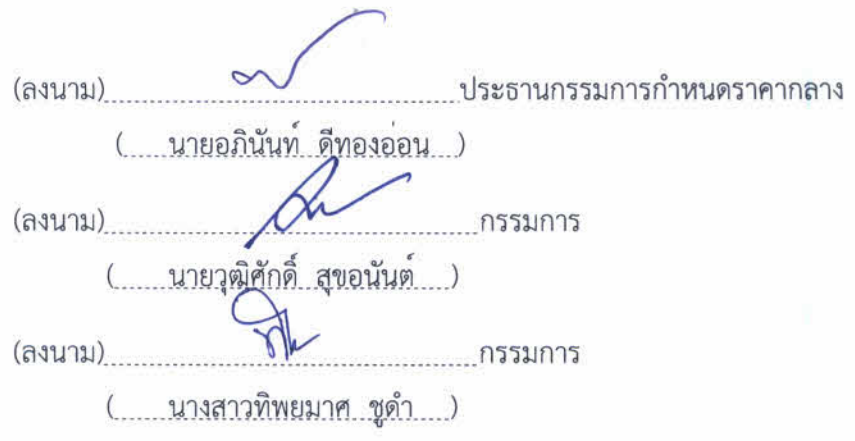 (ลงนาม)ประธานกรรมการกำหนดราคากลาง
(นายอภินันท์ ดีทองอ่อน)
(ลงนาม)กรรมการ
(นายวุฒิศักดิ์ สุขอนันต์)
(ลงนาม)กรรมการ
(นางสาวทิพยมาศ ชูดำ)